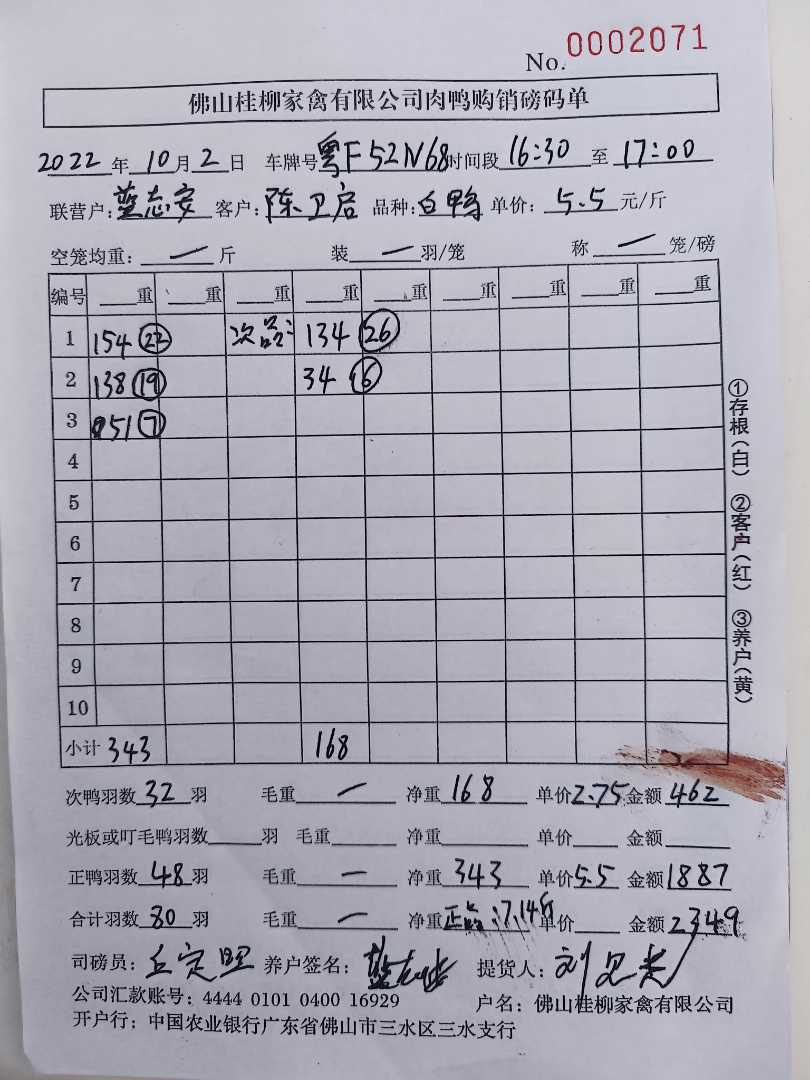 No. 0002071
佛山桂柳家禽有限公司肉鸭购销磅码单
2022 年 10 月 2 日 车牌号 粤F52N68 时间段 16:30 至 17:00
联营户: 蓝志安 客户: 陈卫启 品种: 白鸭 单价: 5.5 元/斤
空笼均重: — 斤 装 — 羽/笼 称 — 笼/磅
编号 重 重 重 重 重 重 重 重 重
1 154 22 次品: 134 26
2 138 19 34 6
3 51 7
4
5
6
7
8
9
10
小计 343 168
次鸭羽数 32 羽 毛重 — 净重 168 单价 2.75 金额 462
光板或叮毛鸭羽数 羽 毛重 净重 单价 金额
正鸭羽数 48 羽 毛重 — 净重 343 单价 5.5 金额 1887
合计羽数 80 羽 毛重 — 净重 正品: 7.14斤 单价 金额 2349
司磅员: 养户签名: 提货人:
公司汇款账号: 4444 0101 0400 16929 户名: 佛山桂柳家禽有限公司
开户行: 中国农业银行广东省佛山市三水区三水支行
①存根(白) ②客户(红) ③养户(黄)